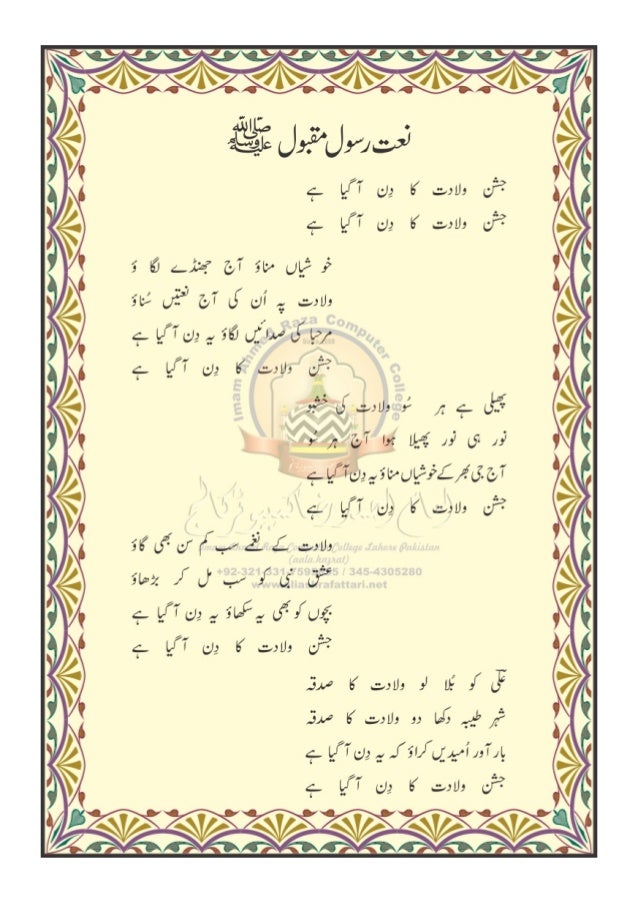 نعت رسول مقبول ﷺ
جشن ولادت کا دِن آ گیا ہے
جشن ولادت کا دِن آ گیا ہے
خو شیاں مناؤ آج جھنڈے لگا ؤ
ولادت پہ اُن کی آج نعتیں سُناؤ
مرحبا کی صدائیں لگاؤ یہ دِن آ گیا ہے
جشن ولادت کا دِن آ گیا ہے
پھیلی ہے ہر سُو ولادت کی خشبو
نور ہی نور پھیلا ہوا آج ہر سُو
آج جی بھر کے خوشیاں مناؤ یہ دِن آ گیا ہے
جشن ولادت کا دِن آ گیا ہے
ولادت کے نغمے سب کم سن بھی گاؤ
عشق نبی کو سب مل کر بڑھاؤ
بچوں کو بھی یہ سکھاؤ یہ دِن آ گیا ہے
جشن ولادت کا دِن آ گیا ہے
علی کو بُلا لو ولادت کا صدقہ
شہر طیبہ دکھا دو ولادت کا صدقہ
بار آور اُمیدیں کراؤ کہ یہ دِن آ گیا ہے
جشن ولادت کا دِن آ گیا ہے
Imam Ahmed Raza Computer College
Imam Ahmed Raza Computer College Lahore Pakistan
(aala.hazrat)
/ 345-4305280